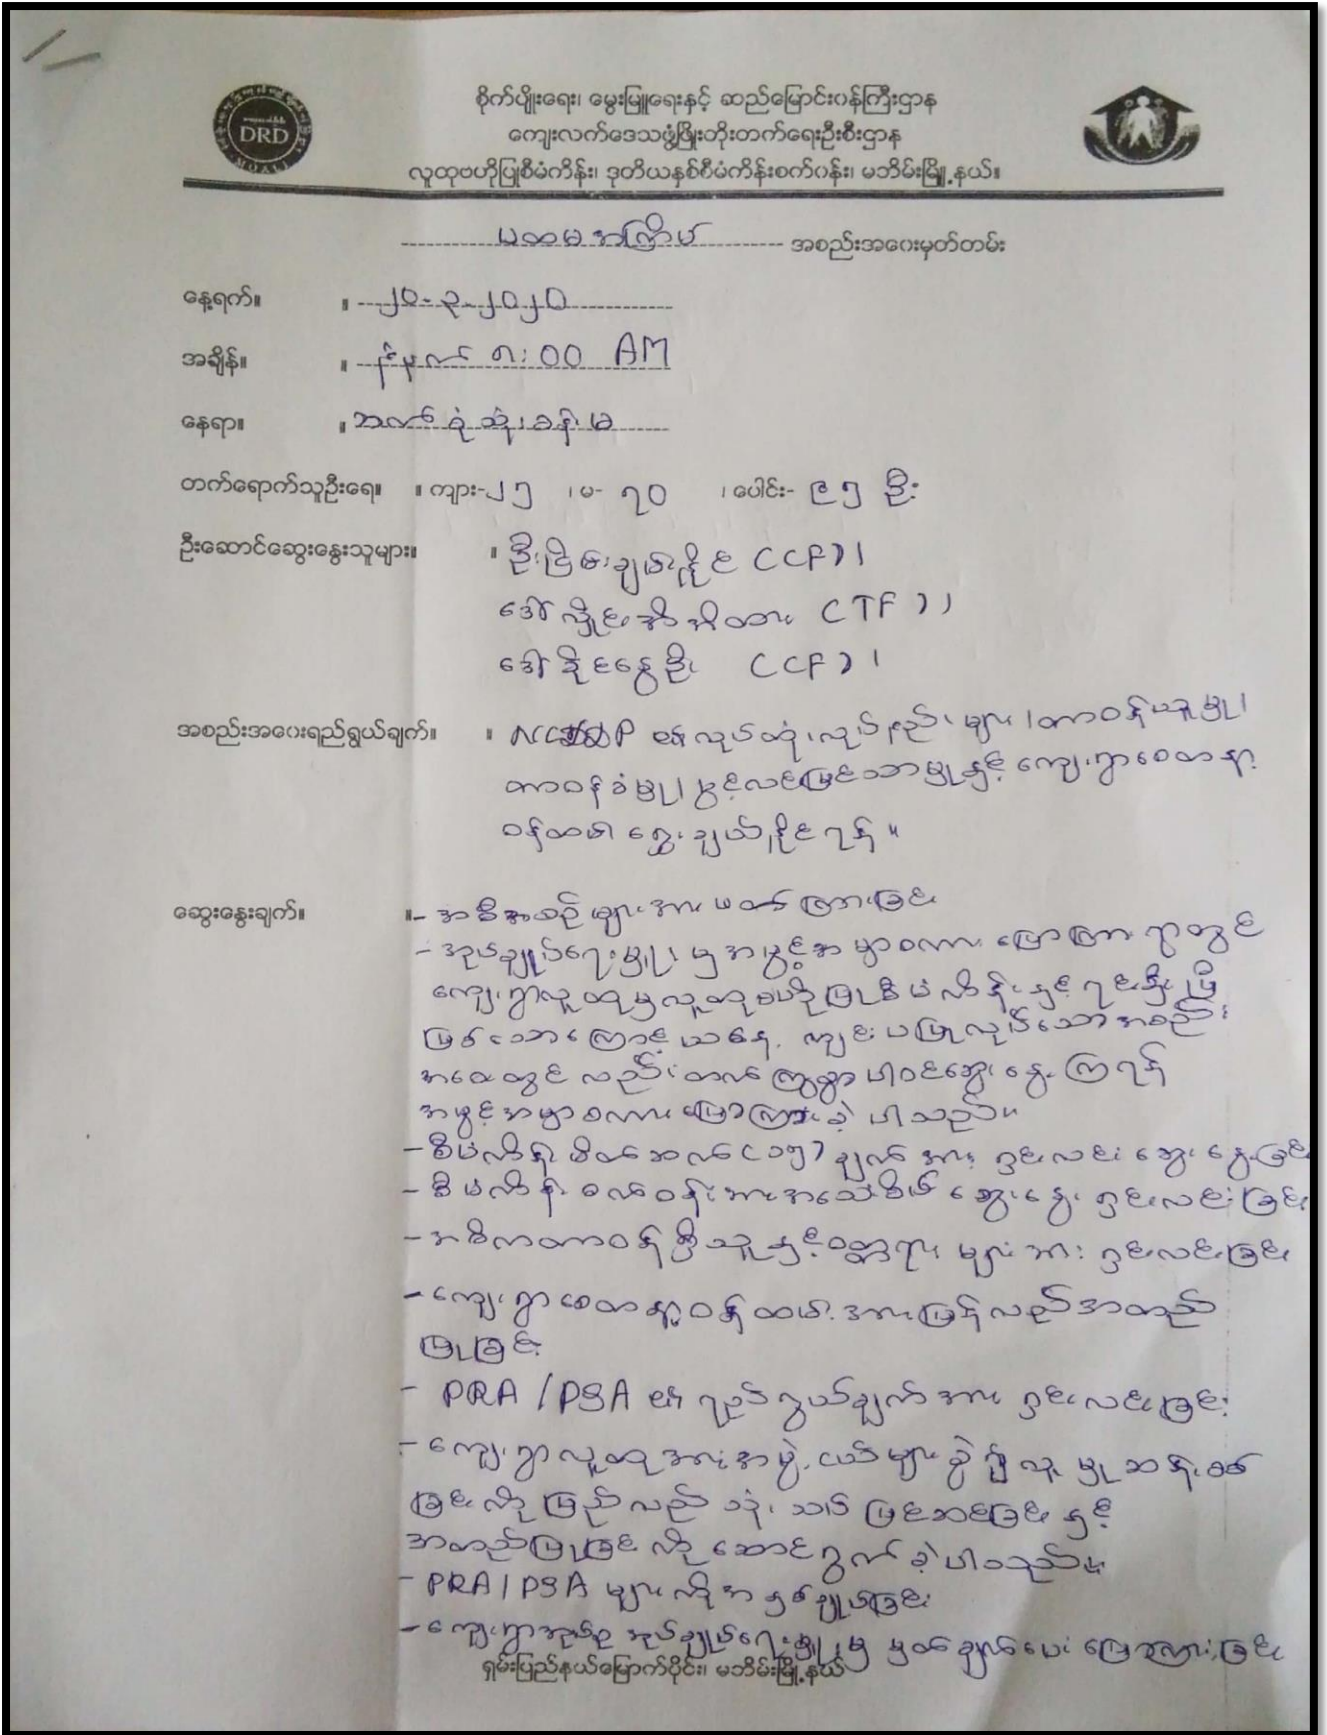 စိုက်ပျိုးရေး၊ မွေးမြူရေးနှင့် ဆည်မြောင်းဝန်ကြီးဌာန
ကျေးလက်ဒေသဖွံ့ဖြိုးတိုးတက်ရေးဦးစီးဌာန
DRD
လူထုဗဟိုပြုစီမံကိန်း၊ ဒုတိယနှစ်စီမံကိန်းစက်ဝန်း၊ မဘိမ်းမြို့နယ်။
ပထမအကြိမ် အစည်းအဝေးမှတ်တမ်း
နေ့ရက်။ ။ ၂၀-၃-၂၀၂၀
အချိန်။ ။ နံနက် ၈:00 AM
နေရာ။ ။ ဘက်စုံသုံးခန်းမ
တက်ရောက်သူဦးရေ။ ။ ကျား-၂၅ ၊ မ- ၇၀ ၊ ပေါင်း- ၉၅ ဦး
ဦးဆောင်ဆွေးနွေးသူများ။ ။ ဦးငြိမ်းချမ်းလှိုင် (CF)၊
ဒေါ်လှိုင်းအိအိထား (TF)၊
ဒေါ်ခိုင်နွေဦး (CF)၊
အစည်းအဝေးရည်ရွယ်ချက်။ ။ NCDDP ၏ လုပ်ထုံးလုပ်နည်းများ၊ တာဝန်ယူမှု၊
တာဝန်ခံမှု၊ ပွင့်လင်းမြင်သာမှုနှင့် ကျေးရွာစေတနာ့
ဝန်ထမ်း ရွေးချယ်နိုင်ရန် ။
ဆွေးနွေးချက်။ ။- အစီအစဉ်များအား ဖတ်ကြားခြင်း
- အုပ်ချုပ်ရေးမှူးမှ အဖွင့်အမှာစကား ပြောကြားရာတွင်
ကျေးရွာလူထုမှလူထုဗဟိုပြုစီမံကိန်းနှင့် ရင်းနှီးပြီး
ဖြစ်သောကြောင့် ယနေ့ ကျင်းပပြုလုပ်သောအစည်း
အဝေးတွင် လည်း တက်ကြွစွာ ပါဝင်ဆွေးနွေးကြရန်
အဖွင့်အမှာစကား ပြောကြားခဲ့ ပါသည်။
- စီမံကိန်းမိတ်ဆက် (၁၅) ချက် အား ရှင်းလင်း ဆွေးနွေးခြင်း
- စီမံကိန်း စက်ဝန်းအားအသေးစိတ် ဆွေးနွေး ရှင်းလင်းခြင်း
- အဓိကတာဝန်ရှိသူနှင့်ဝတ္တရား များအား ရှင်းလင်းခြင်း
- ကျေးရွာစေတနာ့ဝန်ထမ်းအားပြန်လည်အတည်
ပြုခြင်း
- PRA / PSA ၏ ရည်ရွယ်ချက်အား ရှင်းလင်းခြင်း
- ကျေးရွာလူထုအားအဖွဲ့ငယ်များခွဲ၍ လူမှုဆန်းစစ်
ခြင်းကို ပြည်လည် သုံးသပ် ပြင်ဆင်ခြင်း နှင့်
အတည်ပြုခြင်းကို ဆောင်ရွက်ခဲ့ပါသည်။
- PRA / PSA များကိုအနှစ်ချုပ်ခြင်း
- ကျေးရွာအုပ်စု အုပ်ချုပ်ရေးမှူးမှ မှတ်ချက်ပေး ပြောကြားခြင်း
ရှမ်းပြည်နယ်မြောက်ပိုင်း၊ မဘိမ်းမြို့နယ်